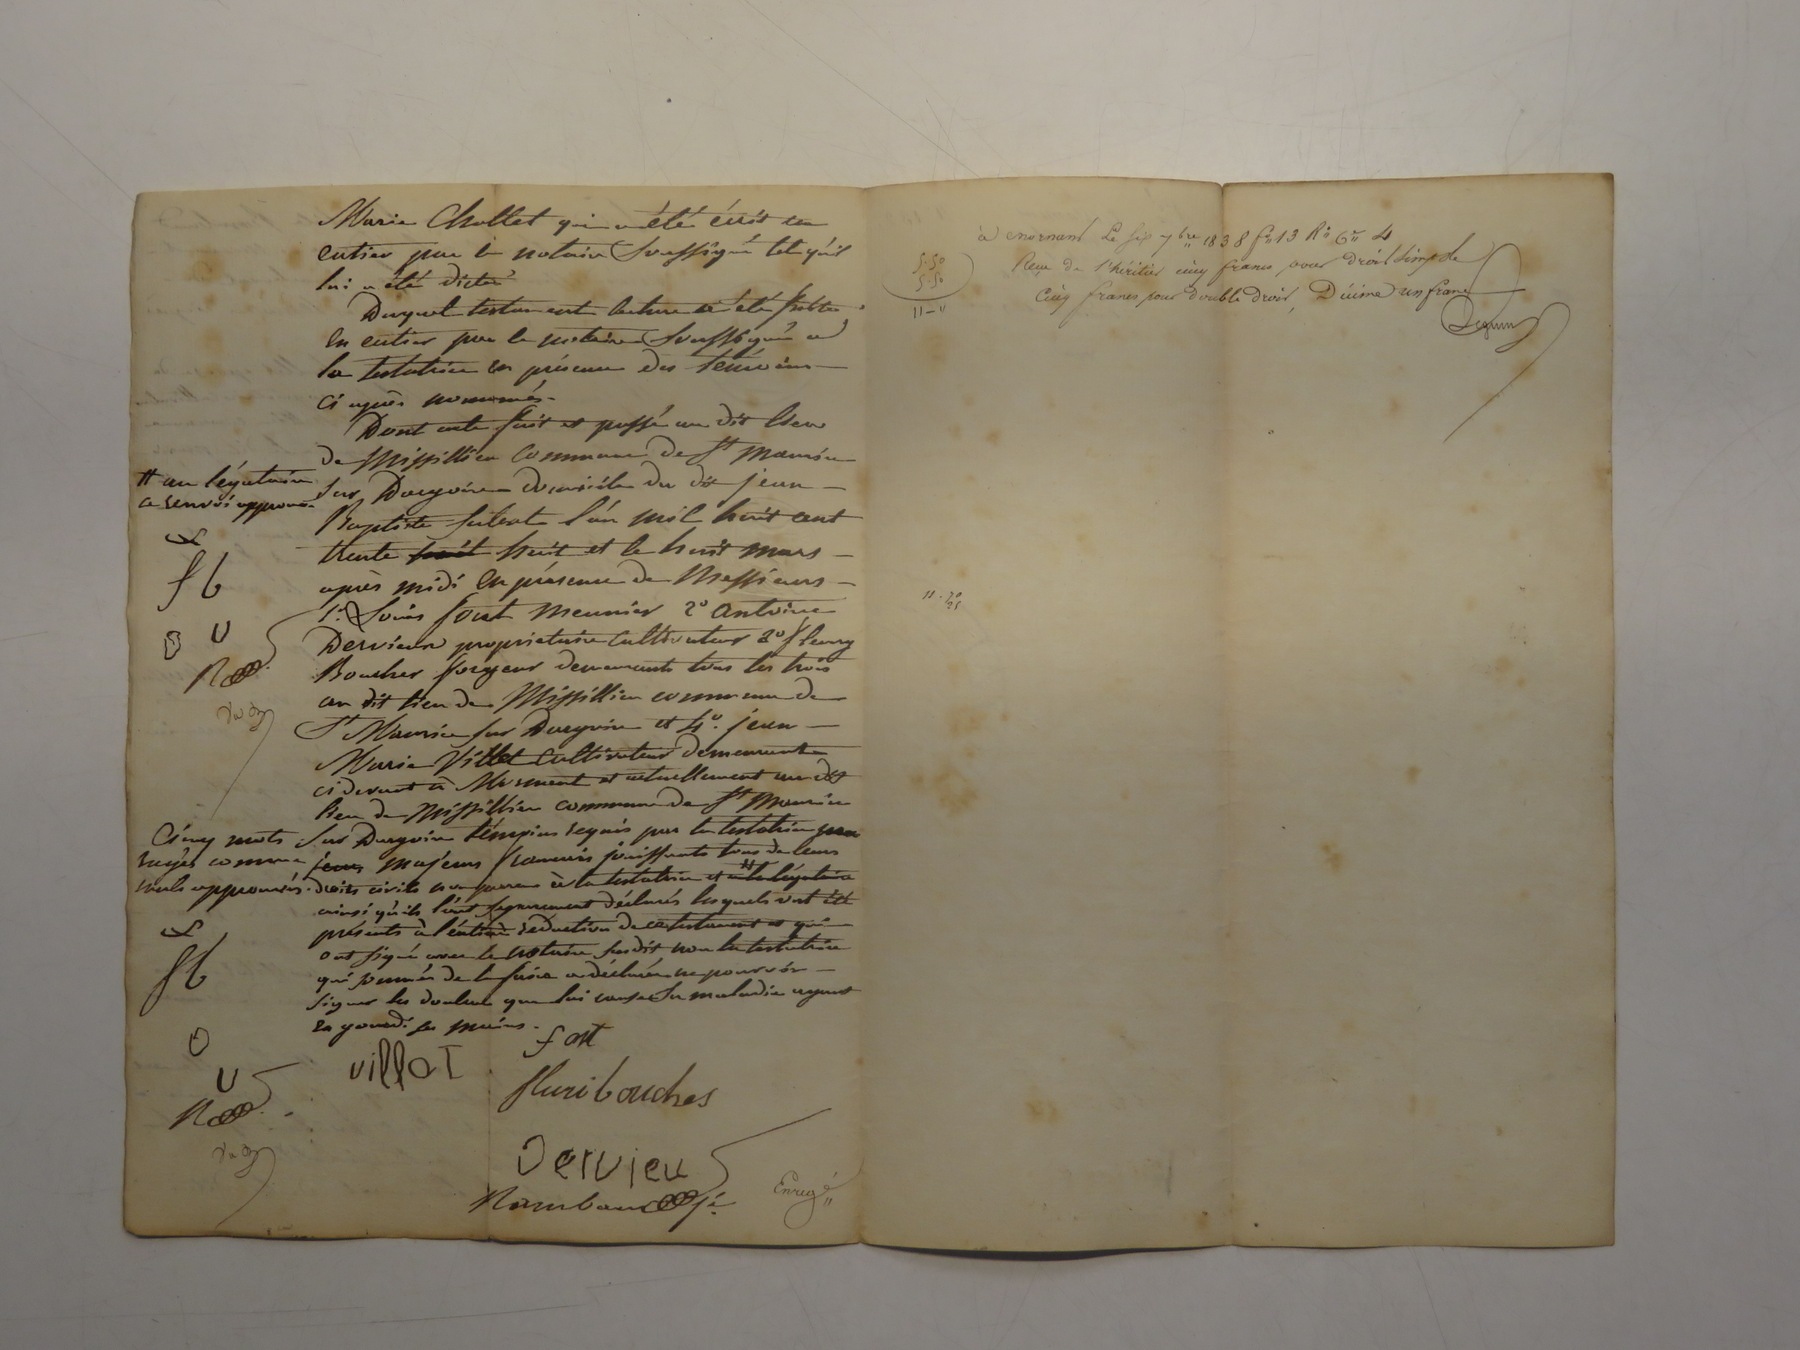 Marie Chollet qui a été écrit en
entier par le notaire soussigné tel qu'il
lui a été dicté
Duquel testament lecture a été faitte
en entier par le notaire soussigné a
la testatrice en présence des témoins
ci après nommés.
Dont acte fait et passé au dit lieu
de Missillieu commune de St Maurice
sur Dargoire domicile du dit jean
Baptiste l'an mil huit cent
trente huit huit et le huit mars
après midi en présence de Messieurs
1o. Louis font meunier 2o antoine
Dervieux propriétaire cultivateur 3o fleury
Boucher forgeur demeurants tous les trois
au dit lieu de Missillieu commune de
St Maurice sur Dargoire et 4o. jean
Marie Villet cultivateur demeurant
ci devant à Mornant et actuellement au dit
lieu de Missillieu commune de St Maurice
sur Dargoire témoins requis par la testatrice
majeurs francais jouissants tous de leurs
droits civils non parens à la testatrice et
ainsi qu'ils l'ont séparement déclarés lesquels ont été
présents à l'entière rédaction de ce testament et qui
ont signé avec le notaire susdit non la testatrice
qui sommée de le faire a déclarée ne pouvoir
signer les douleurs que lui cause sa maladie ayant
engourdi ses mains.
# au légataire
ce renvoi approuvé
fb
D V
Cinq mots
rayés comme
nuls approuvés.
fb
D
V
villot
font
fluri bouches
Dervieu
Rambaud
Enregé
à mornant Le six 7bre 1838 fo 13 Ro Co 4
Reçu de l'héritier cinq francs pour droit simple
Cinq francs pour double droit, Décime un franc
5-50
5-50
11-"